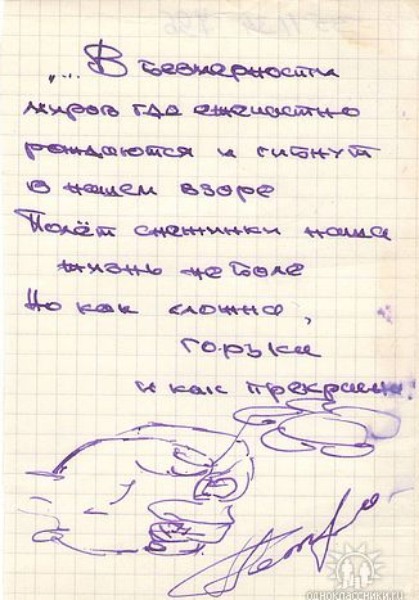 „... В безмерности
миров где ежечастно
рождаются и гибнут
в нашем взоре
Полёт снежинки наша
жизнь не боле
Но как сложна,
горька
и как прекрасна
одноклассники.ru